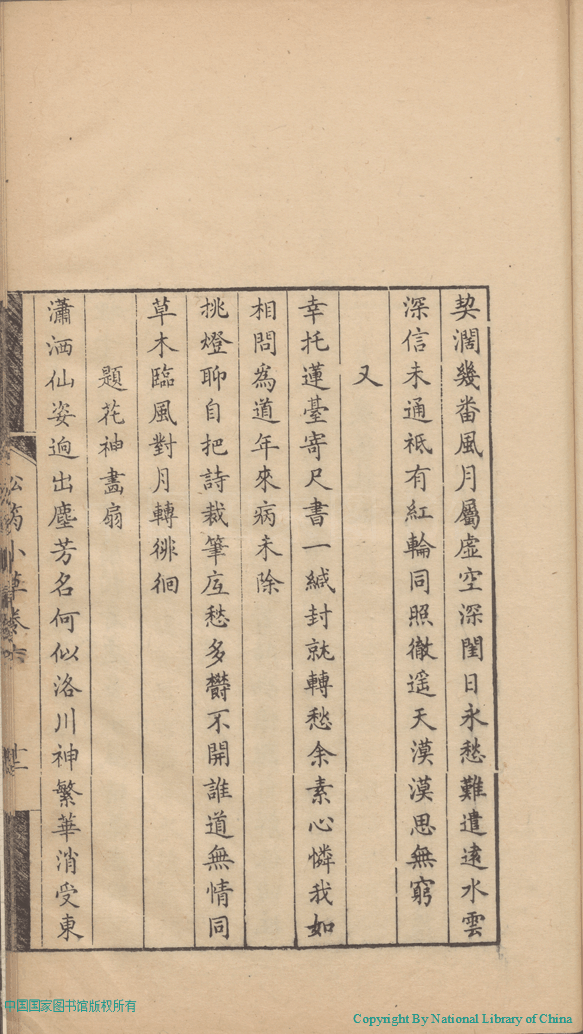 契濶幾番風月屬虛空深閨日永愁難遣遠水雲
深信未通祗有紅輪同照徹遥天漠漠思無窮
又
幸托蓮臺寄尺書一緘封就轉愁余素心憐我如
相問為道年來病未除
挑燈聊自把詩裁筆底愁多欝不開誰道無情同
草木臨風對月轉徘徊
題花神畫扇
瀟洒仙姿逈出塵芳名何似洛川神繁華消受東
中国国家图书馆版权所有
Copyright By National Library of China